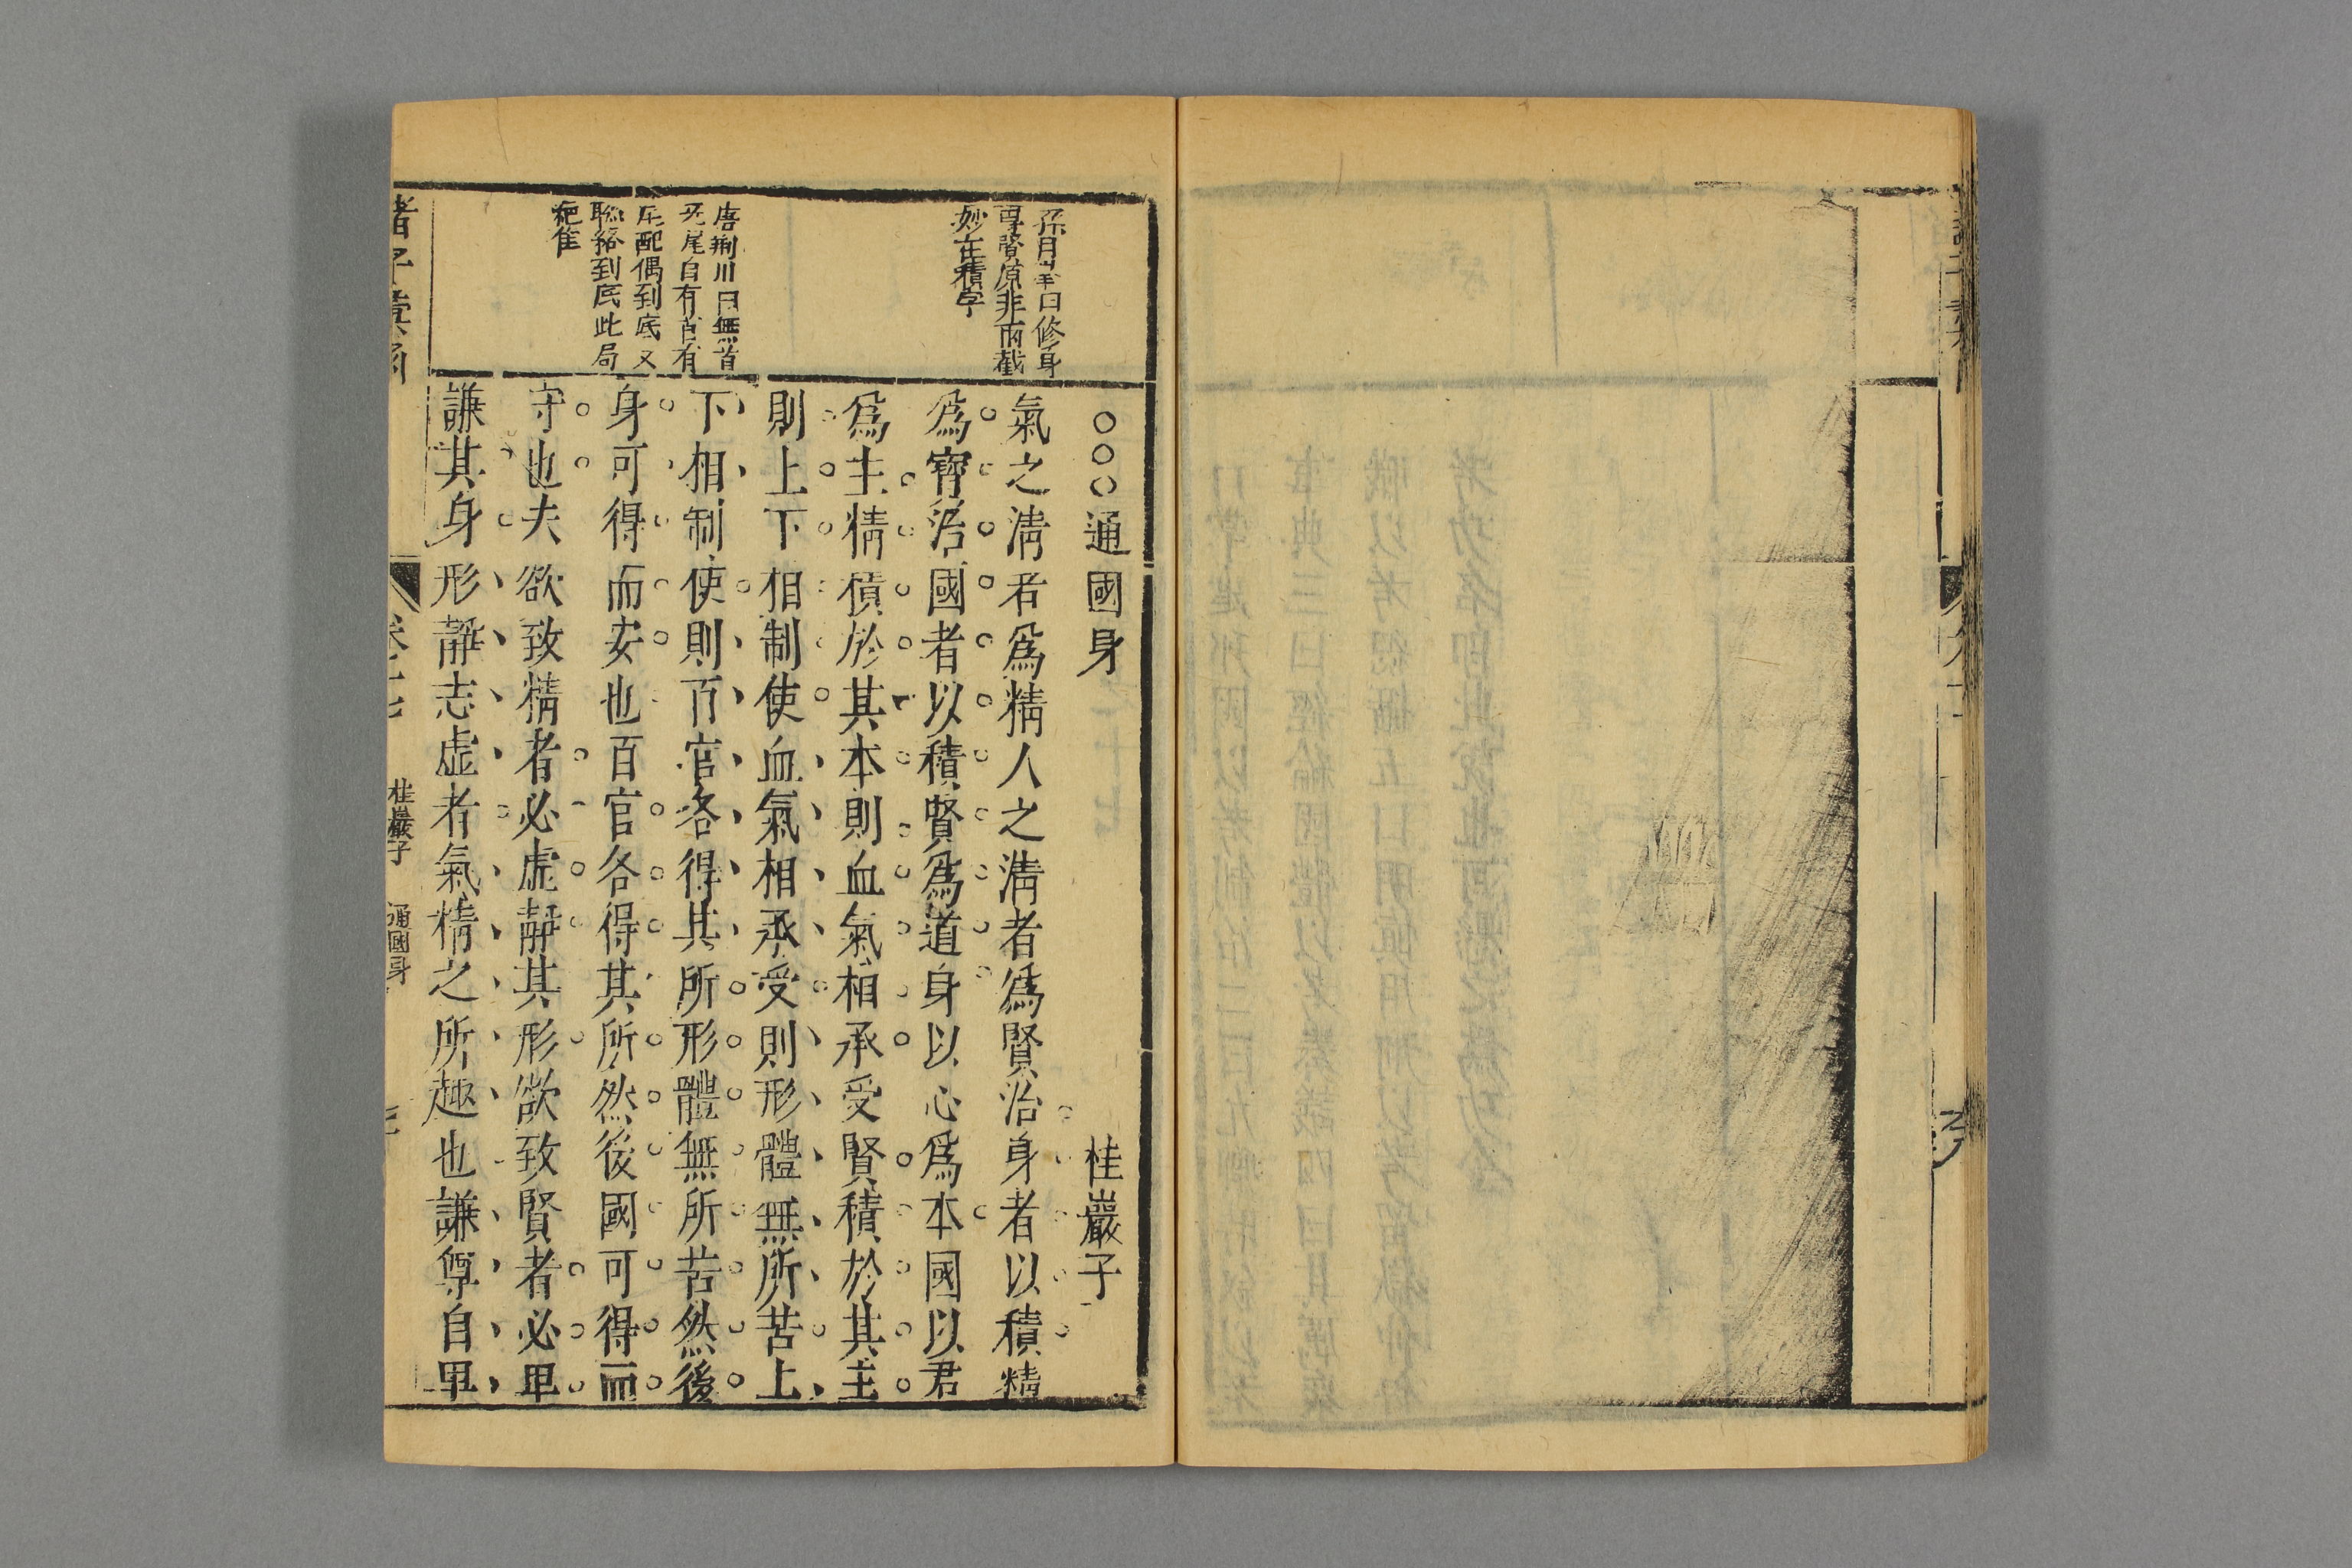 通國身 桂巖子
氣之淸者爲精人之淸者爲賢治身者以積精
爲寶治國者以積賢爲道身以心爲本國以君
爲主精積於其本則血氣相承受賢積於其主
則上下相制使血氣相承受則形體無所苦上
下相制使則百官各得其所形體無所苦然後
身可得而安也百官各得其所然後國可得而
守也夫欲致精者必虛靜其形欲致賢者必𤰞
謙其身形靜志虛者氣精之所趣也謙尊自𤰞
孫月峯曰修身
尊賢原非兩截
妙在積字
唐荆川曰無首
无尾自有首有
尾配偶到底又
聯絡到底此局
桂巖子
通國身